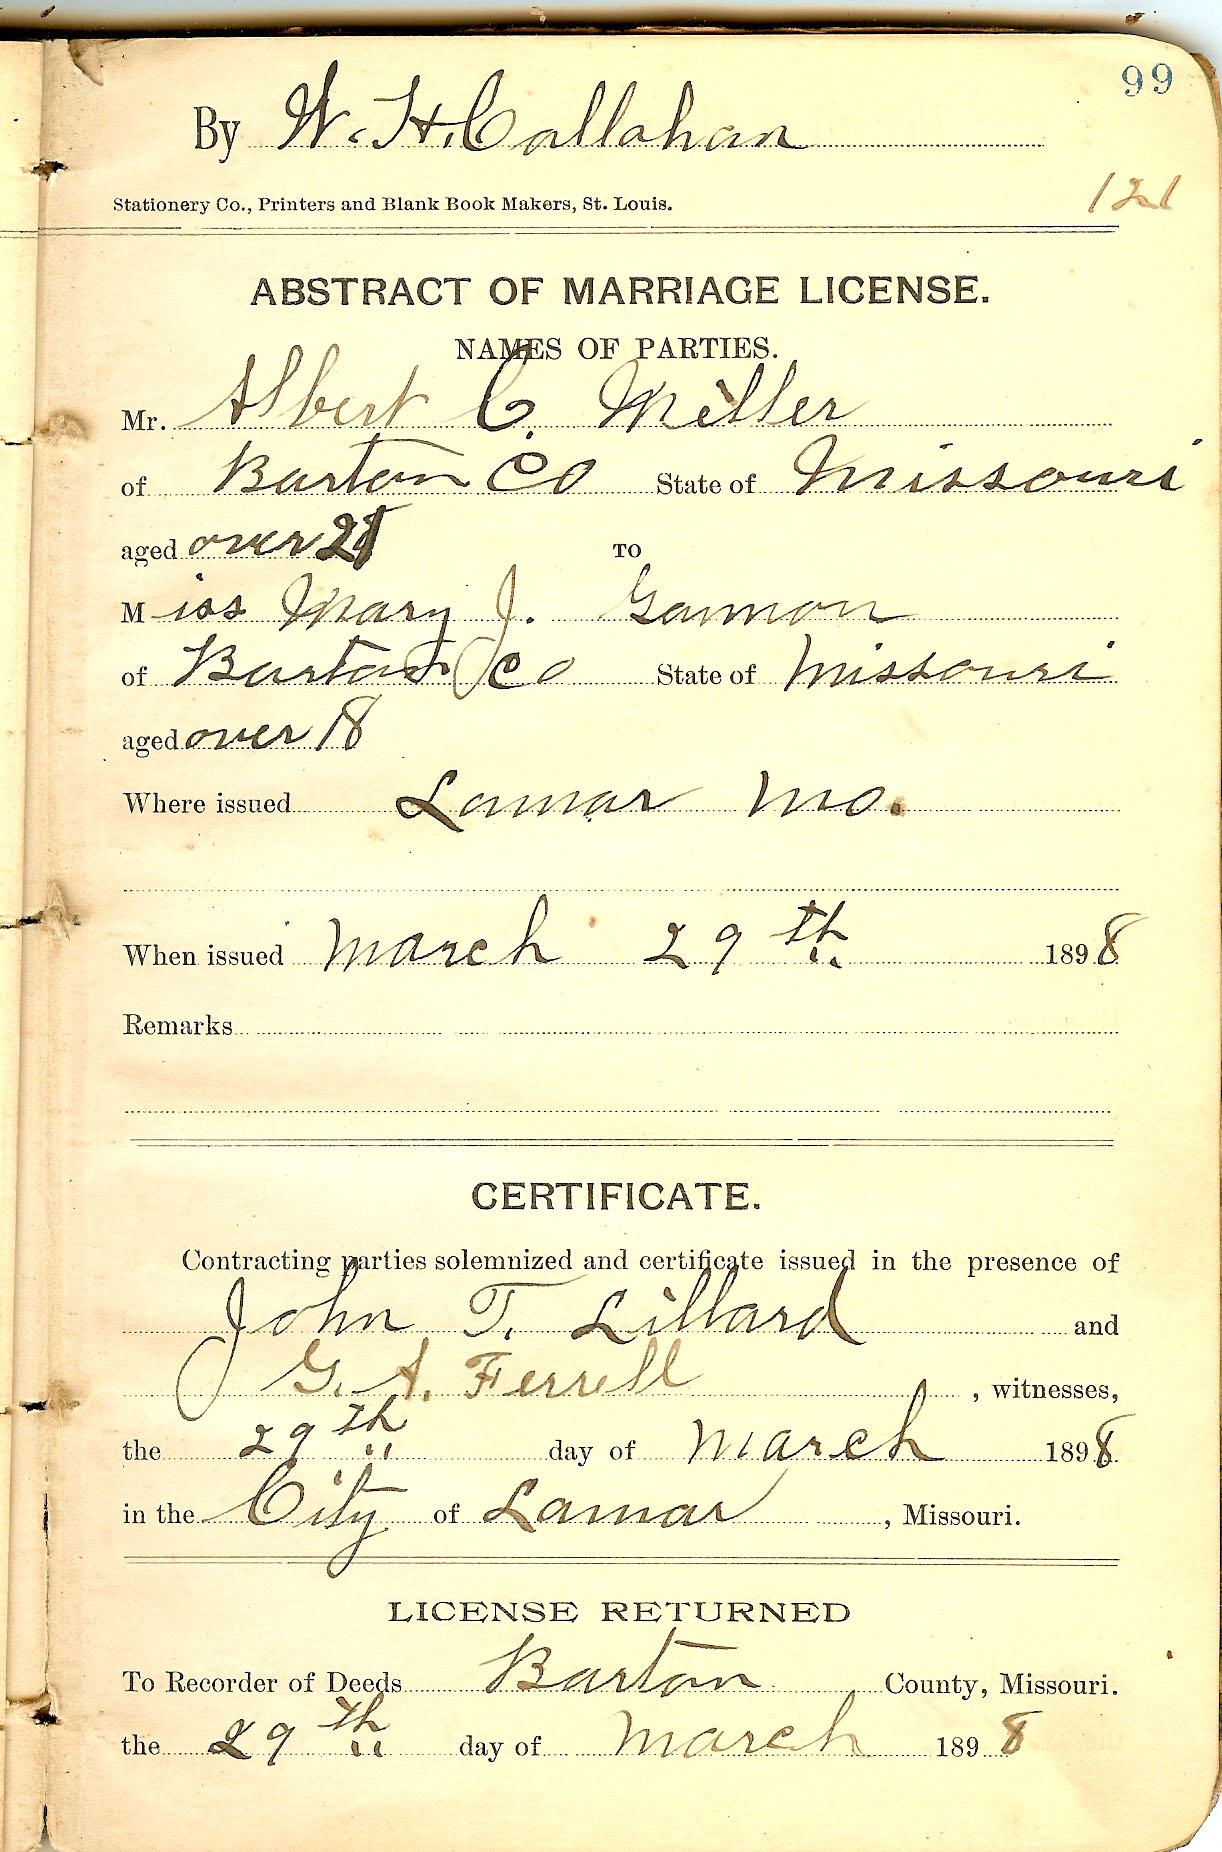 99
By W. H. Callahan
Stationery Co., Printers and Blank Book Makers, St. Louis.
121
ABSTRACT OF MARRIAGE LICENSE.
NAMES OF PARTIES.
Mr. Albert C. Miller
of Barton Co State of Missouri
aged over 21 TO
Miss Mary J. Gammon
of Barton Co State of Missouri
aged over 18
Where issued Lamar Mo.
When issued March 29th 1898
Remarks
CERTIFICATE.
Contracting parties solemnized and certificate issued in the presence of
John T. Lillard and
G. A. Ferrell, witnesses,
the 29th day of March 1898
in the City of Lamar, Missouri.
LICENSE RETURNED
To Recorder of Deeds Barton County, Missouri.
the 29th day of March 1898